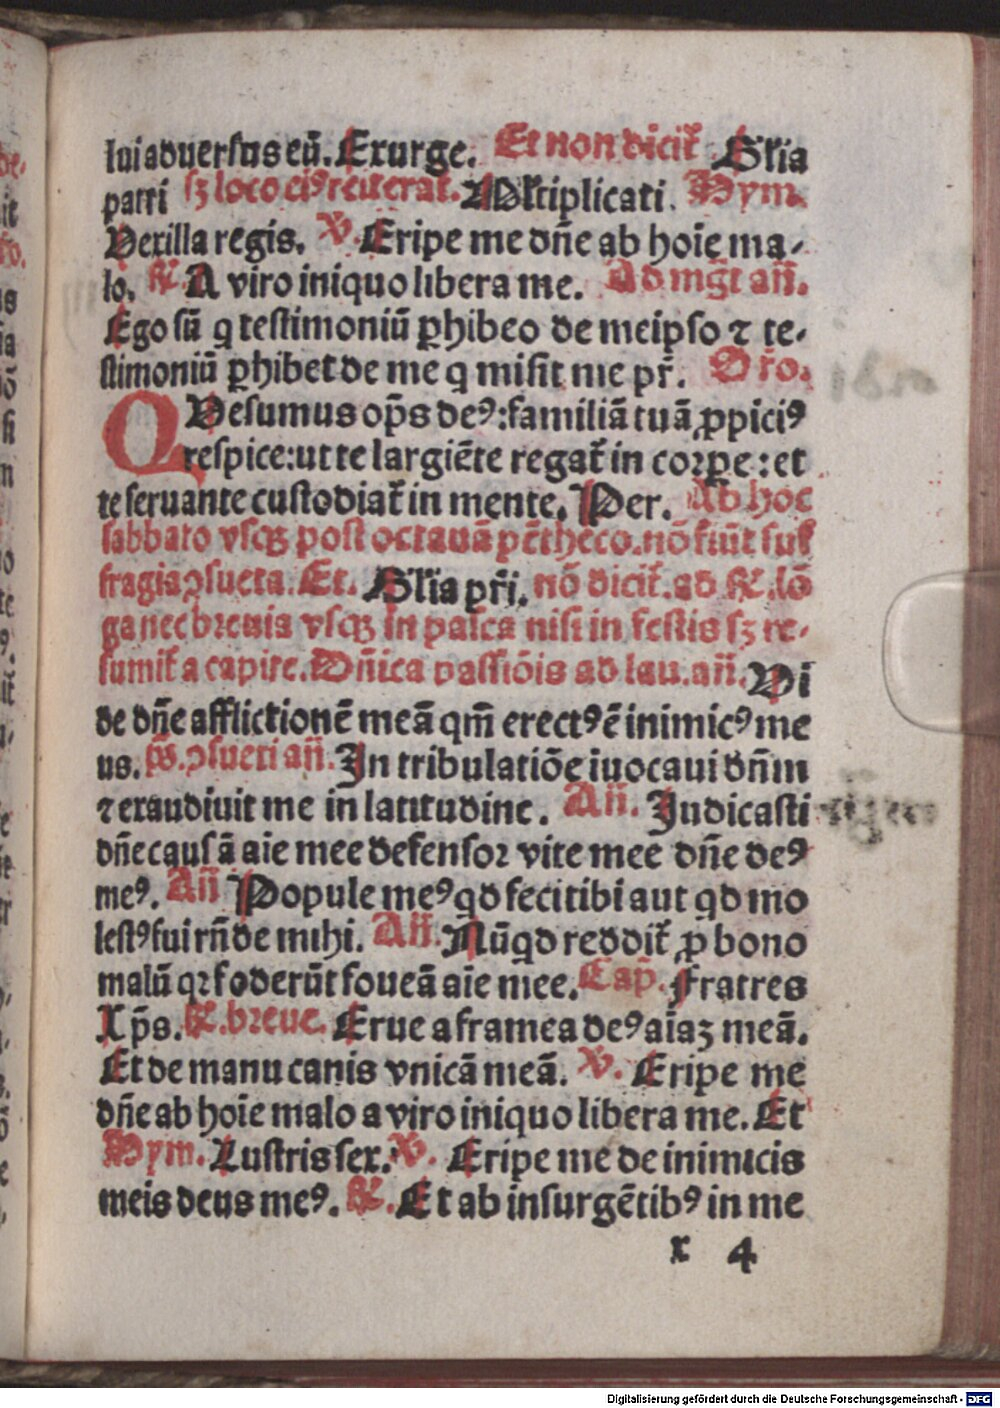 lui aduersus eū. Exurge. Et non dicit᷑ Gl̄ia
patri sꝫ loco eiꝰ reiterat᷑. Ml̄tiplicati. Hym.
Vexilla regis. V̄. Eripe me dn̄e ab hoīe ma-
lo. R̄. A viro iniquo libera me. Ad mḡt an̄.
Ego sū q testimoniū ꝑhibeo de meipso ⁊ te-
stimoniū ꝑhibet de me q misit me pr̄. Or̄o.
QVesumus op̄s deꝰ: familiā tuā ꝓpiciꝰ
respice: ut te largiēte regat᷑ in corꝑe: et
te seruante custodiat᷑ in mente. Per. Ab hoc
sabbato vsqꝫ post octauā pētheco. nō fiūt suf
fragia ꝯsueta. Et. Gl̄ia pr̄i. nō dicit᷑. ad R̄. lō
ga nec breuia vsqꝫ in pasca nisi in festis sꝫ re-
sumit᷑ a capite. Dn̄ica passiōis ad lau. an̄. Vi
de dn̄e afflictionē meā qm̄ erectꝰ ē inimicꝰ me
us. p̄s. ꝯsueti an̄. In tribulatiōe īuocaui dn̄m
⁊ exaudiuit me in latitudine. An̄. Iudicasti
dn̄e causā aīe mee defensor vite mee dn̄e deꝰ
meꝰ. An̄ Popule meꝰ qd feci tibi aut qd mo
lestꝰ fui rn̄de mihi. An̄. Nūqd reddit᷑ ꝓ bono
malū qꝛ foderūt foueā aīe mee. Cap̄. Fratres
Xp̄s. R̄. breue. Erue a framea deꝰ aīaꝫ meā.
Et de manu canis vnicā meā. V̄. Eripe me
dn̄e ab hoīe malo a viro iniquo libera me. Et
Hym. Lustris sex. V̄. Eripe me de inimicis
meis deus meꝰ. R̄. Et ab insurgētibꝰ in me
x 4
Digitalisierung gefördert durch die Deutsche Forschungsgemeinschaft - DFG